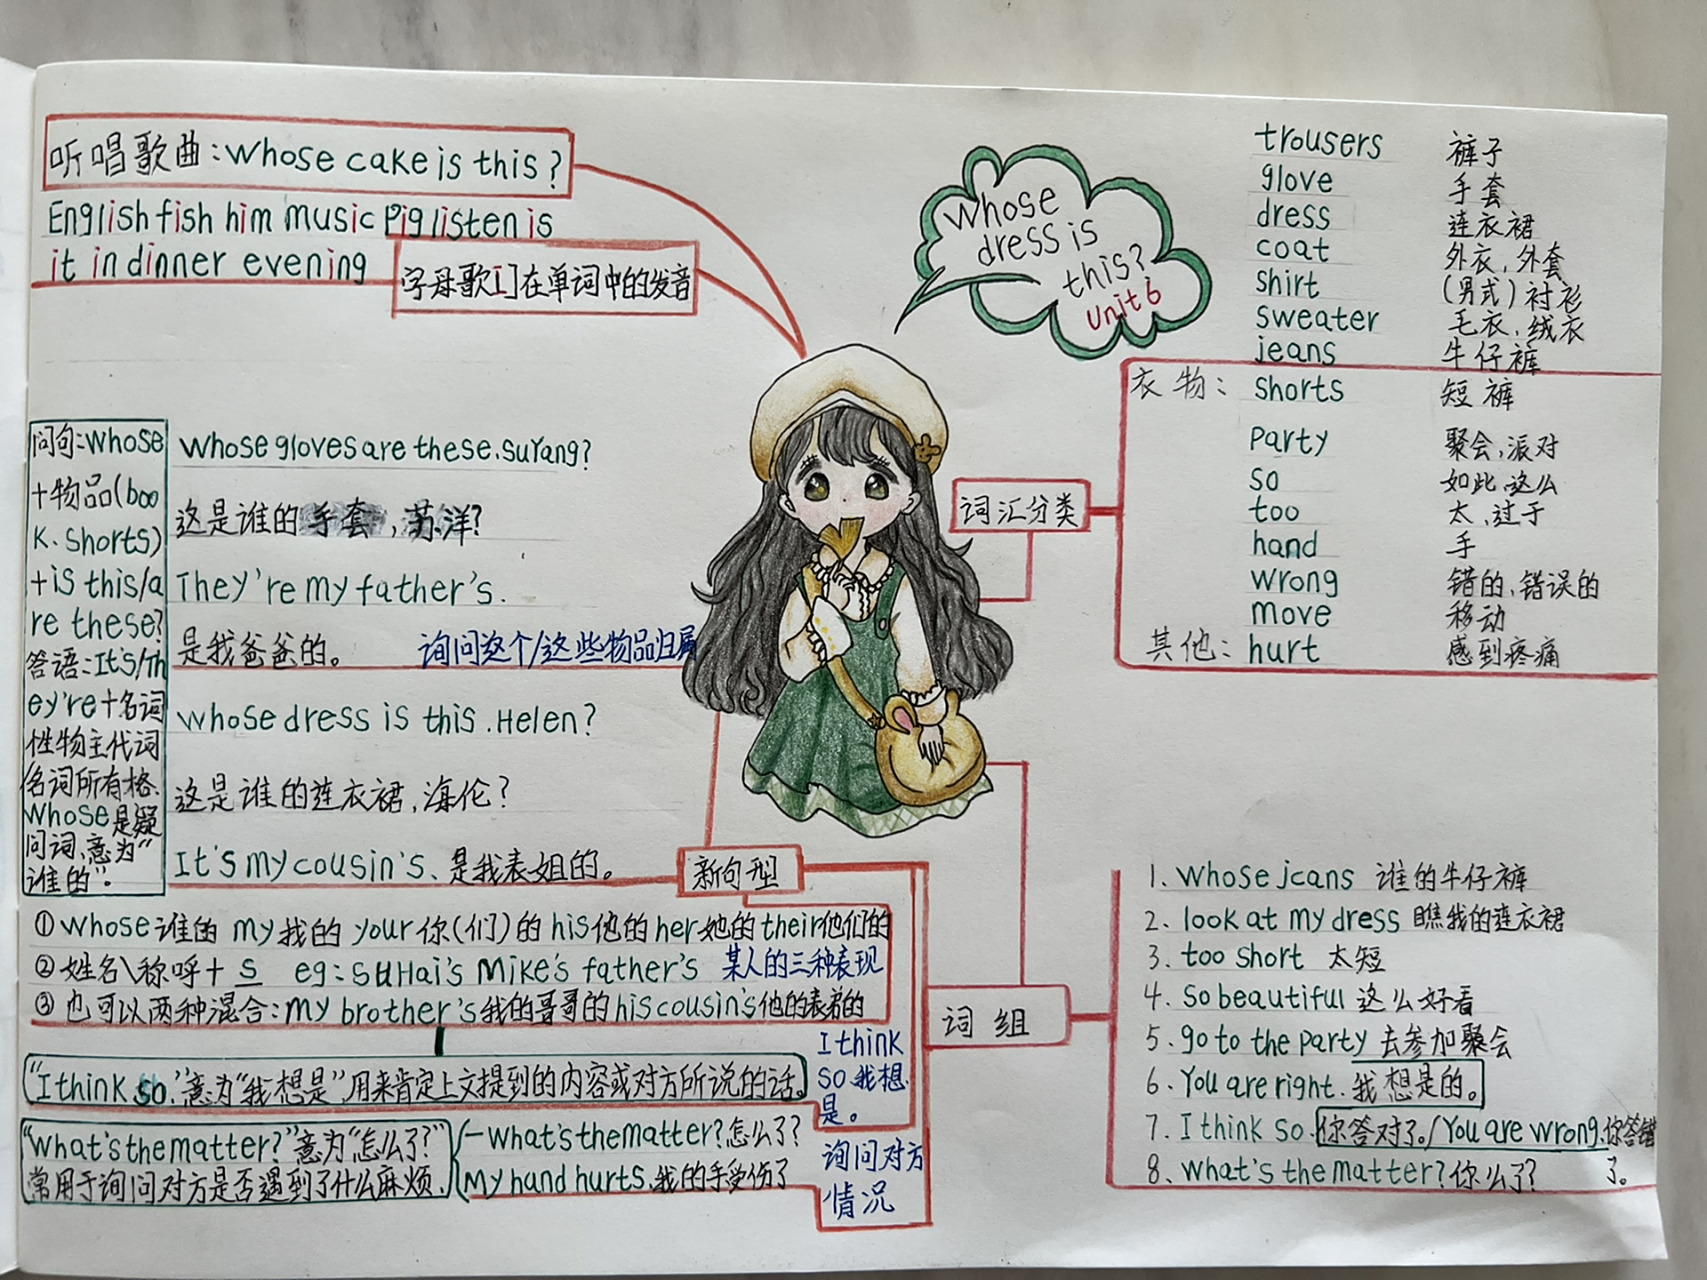 听唱歌曲:whose cake is this?
English fish him music Pig listen is
it in dinner evening
字母歌[I]在单词中的发音
whose
dress is
this?
Unit 6
trousers 裤子
glove 手套
dress 连衣裙
coat 外衣,外套
shirt (男式)衬衫
sweater 毛衣,绒衣
jeans 牛仔裤
衣物: shorts 短裤
party 聚会,派对
so 如此,这么
too 太,过于
hand 手
wrong 错的,错误的
move 移动
其他: hurt 感到疼痛
词汇分类
问句:whose
+物品(boo
k.shorts)
+is this/a
re these?
答语:It's/Th
ey're+名词
性物主代词
名词所有格.
whose是疑
问词,意为"
谁的".
whose gloves are these.suYang?
这是谁的手套,苏洋?
They're my father's.
是我爸爸的。 询问这个/这些物品归属
whose dress is this.Helen?
这是谁的连衣裙,海伦?
It's my cousin's、是我表姐的。
新句型
①whose谁的 my我的 your你(们)的 his他的 her她的 their他们的
②姓名\称呼+s eg:suHai's Mike's father's 某人的三种表现
③也可以两种混合:my brother's我的哥哥的 his cousin's他的表弟的
"I think so."意为"我想是",用来肯定上文提到的内容或对方所说的话。
I think
so.我想
是。
"what's the matter?"意为"怎么了?"
常用于询问对方是否遇到了什么麻烦.
-what's the matter?怎么了?
my hand hurts.我的手受伤了
询问对方
情况
词组
1. whose jeans 谁的牛仔裤
2. look at my dress 瞧我的连衣裙
3. too short 太短
4. so beautiful 这么好看
5. go to the party 去参加聚会
6. You are right. 我想是的。
7. I think so.你答对了。/You are wrong.你答错
了。
8. what's the matter?你么了?